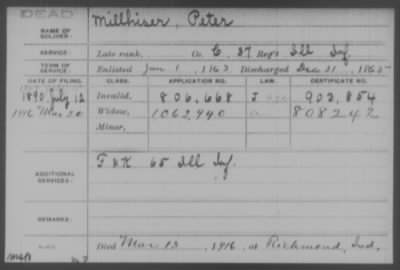 DEAD
NAME OF SOLDIER: Millhiser, Peter
SERVICE: Late rank, Co. C, 37 Reg't Ill Inf.
TERM OF SERVICE: Enlisted Jan 1, 1863 Discharged Dec 31, 1865
DATE OF FILING. CLASS. APPLICATION NO. LAW. CERTIFICATE NO.
1890 July 12 Invalid, 806,668 J 903,854
1916 Mar 20 Widow, 1,062,940 808242
Minor,
ADDITIONAL SERVICES: F & K 65 Ill Inf.
REMARKS:
Died Mar 13, 1916, at Richmond, Ind.